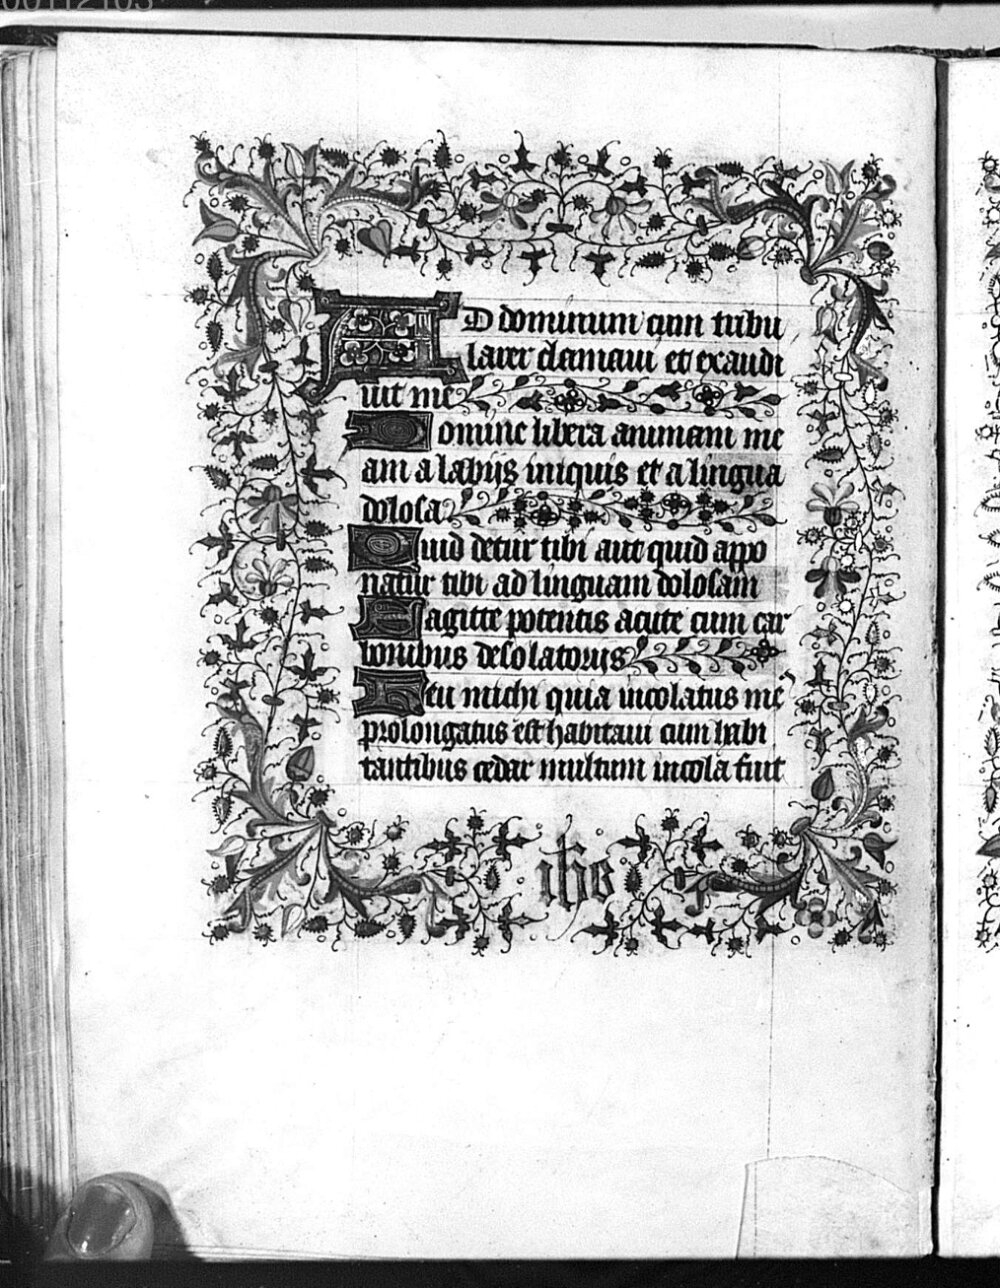 AD dominum cum tribu
larer clamaui et exaudi
uit me
Domine libera animam me
am a labijs iniquis et a lingua
dolosa
Quid detur tibi aut quid appo
natur tibi ad linguam dolosam
Sagitte potentis acute cum car
bonibus desolatorijs
Heu michi quia incolatus me'
prolongatus est habitaui cum habi
tantibus cedar multum incola fuit
ihc